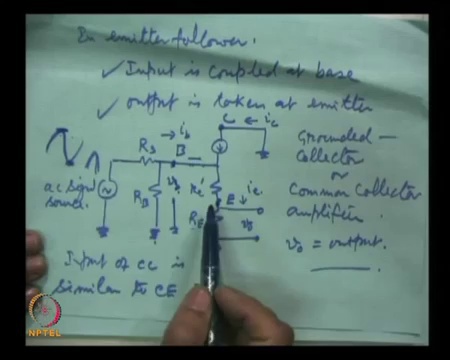 In emitter follower.
✓ Input is coupled at base
✓ output is taken at emitter
C ← ic
→ ib
B
Rs
RB
re'
E ↓ ie
RE
vo
ac signal
source.
Grounded-
Collector
or
Common Collector
amplifier.
vo = output.
Input of CC is
similar to CE
NPTEL